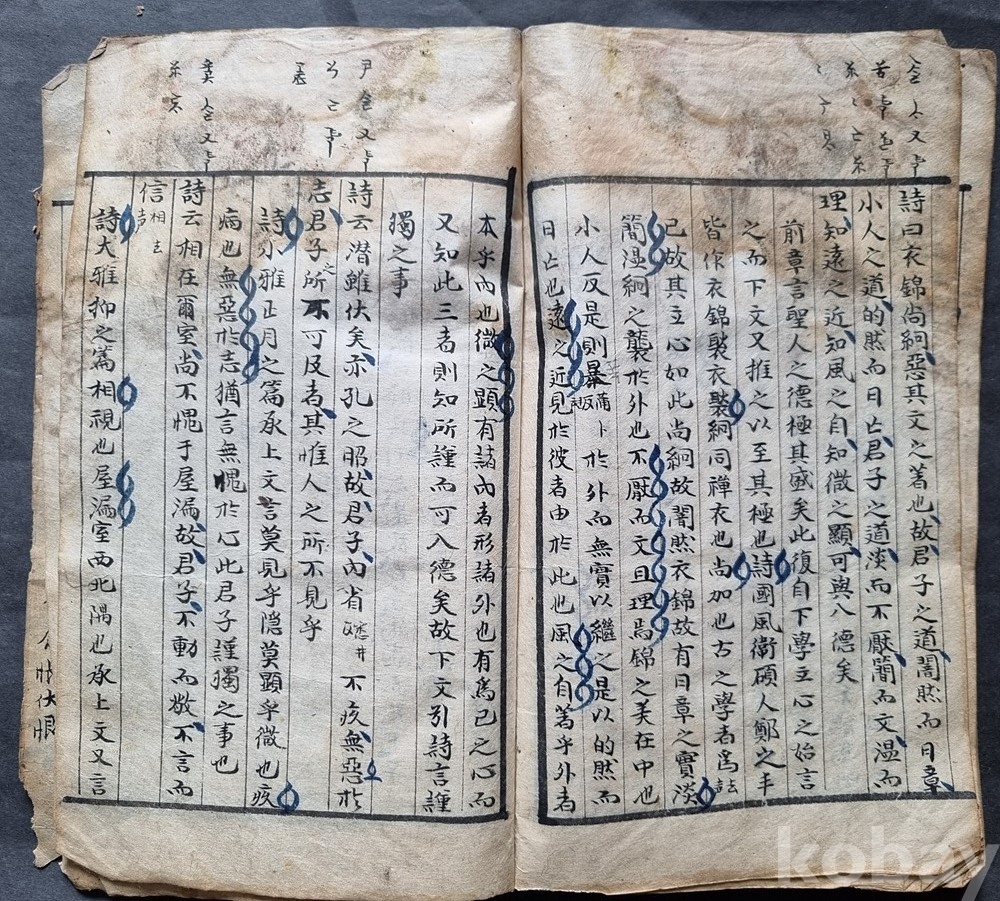 詩曰衣錦尙絅惡其文之著也故君子之道闇然而日章
小人之道的然而日亡君子之道淡而不厭簡而文溫而
理知遠之近知風之自知微之顯可與入德矣
前章言聖人之德極其盛矣此復自下學立心之始言
之而下文又推之以至其極也詩國風衛碩人鄭之丰
皆作衣錦褧衣褧絅同襌衣也尙加也古之學者爲
己故其立心如此尙絅故闇然衣錦故有日章之實淡
簡溫絅之襲於外也不厭而文且理焉錦之美在中也
小人反是則暴於外而無實以繼之是以的然而
日亡也遠之近見於彼者由於此也風之自著乎外者
本乎內也微之顯有諸內者形諸外也有爲己之心而
又知此三者則知所謹而可入德矣故下文引詩言謹
獨之事
詩云潛雖伏矣亦孔之昭故君子內省不疚無惡於
志君子之所不可及者其惟人之所不見乎
詩小雅正月之篇承上文言莫見乎隱莫顯乎微也疚
病也無惡於志猶言無愧於心此君子謹獨之事也
詩云相在爾室尙不愧于屋漏故君子不動而敬不言而
信
相去声
詩大雅抑之篇相視也屋漏室西北隅也承上文又言
kobay